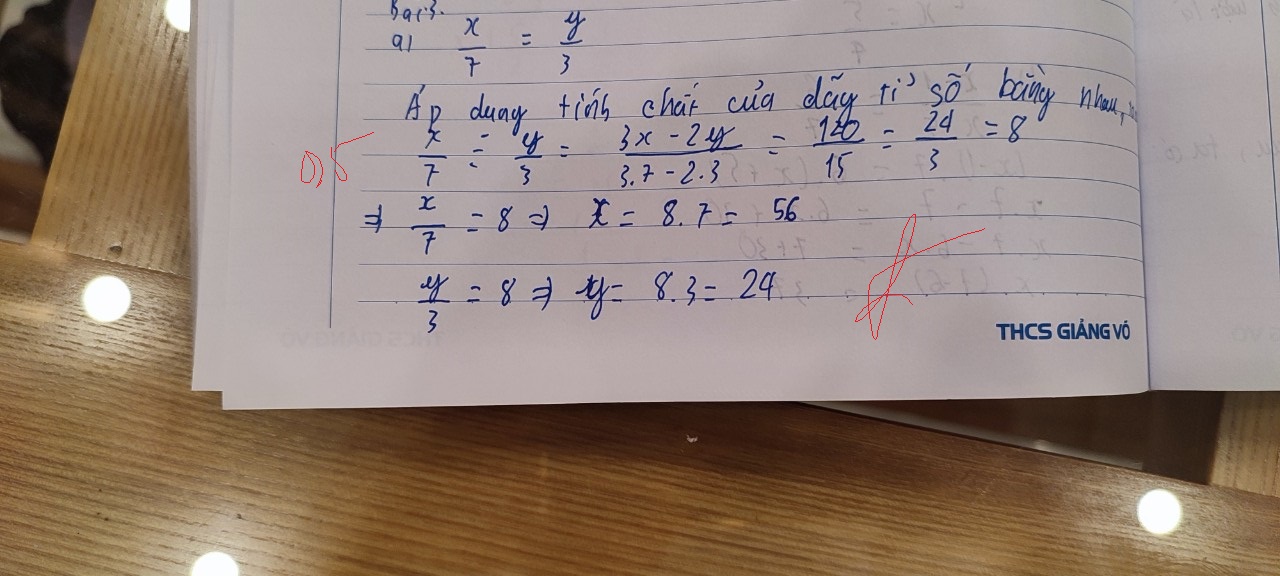 Bài 3.
a) x/7 = y/3
Áp dụng tính chất của dãy tỉ số bằng nhau,
0,5
x/7 = y/3 = 3x - 2y/3.7 - 2.3 = 120/15 = 24/3 = 8
⇒ x/7 = 8 ⇒ x = 8.7 = 56
y/3 = 8 ⇒ y = 8.3 = 24
THCS GIẢNG VÕ